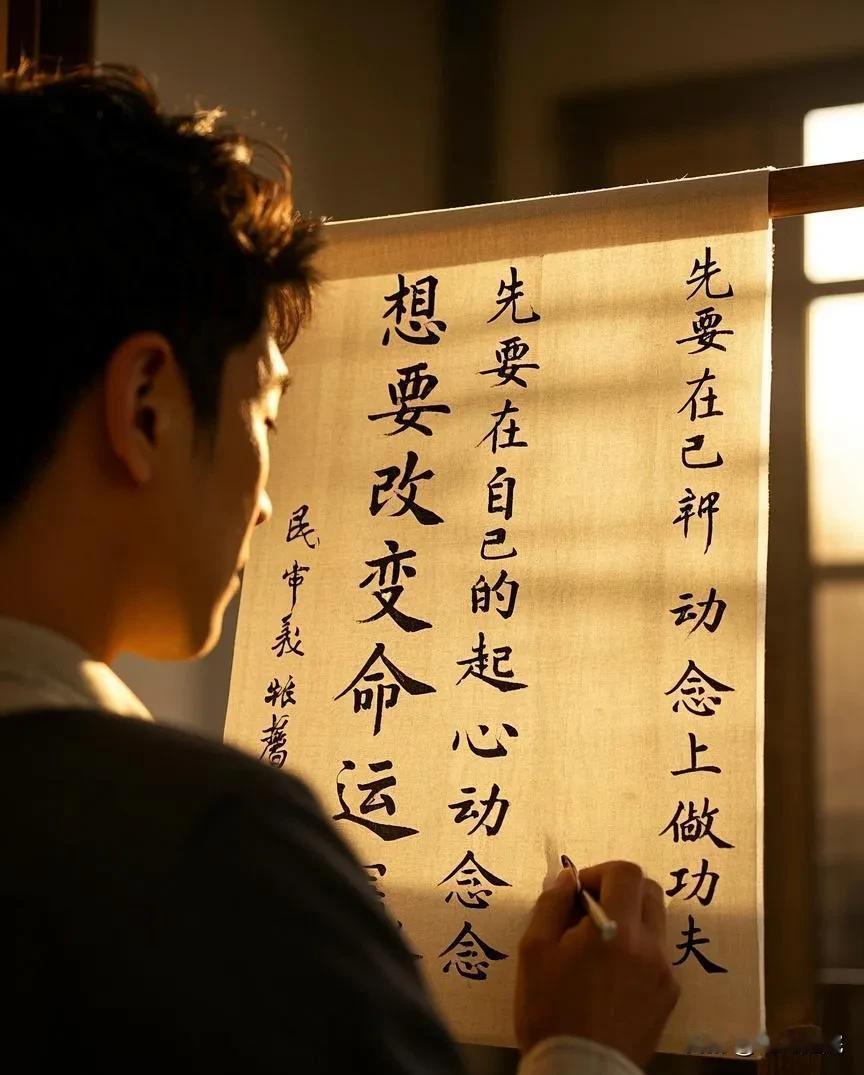 先要在己动念上做功夫
先要在自己的起心动念念
想要改变命运
民